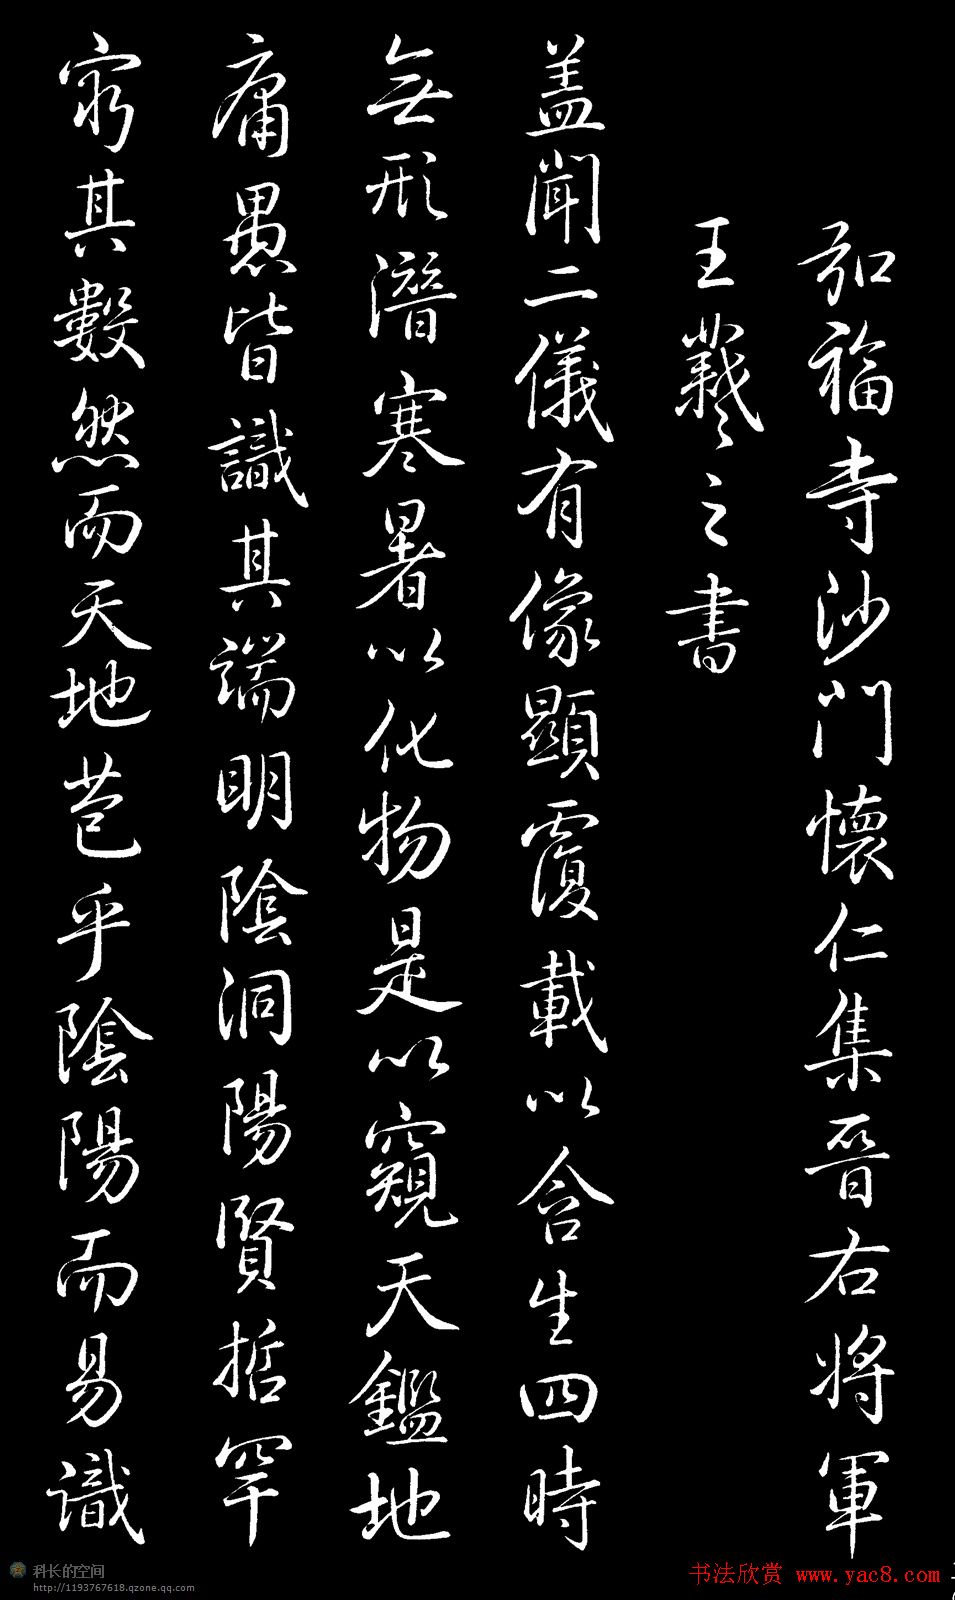 弘福寺沙門懷仁集晉右將軍
王羲之書
蓋聞二儀有像顯覆載以含生四時
無形潛寒暑以化物是以窺天鑑地
庸愚皆識其端明陰洞陽賢哲罕
窮其數然而天地苞乎陰陽而易識
科长的空间
http://1193767618.qzone.qq.com
书法欣赏 www.yac8.com